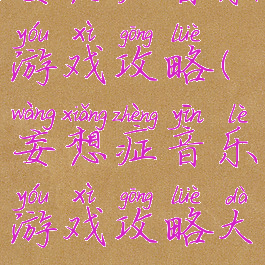 yóu xì gōng lüè
游戏攻略(
wàng xiǎng zhèng yīn lè
妄想症音乐
yóu xì gōng lüè dà
游戏攻略大